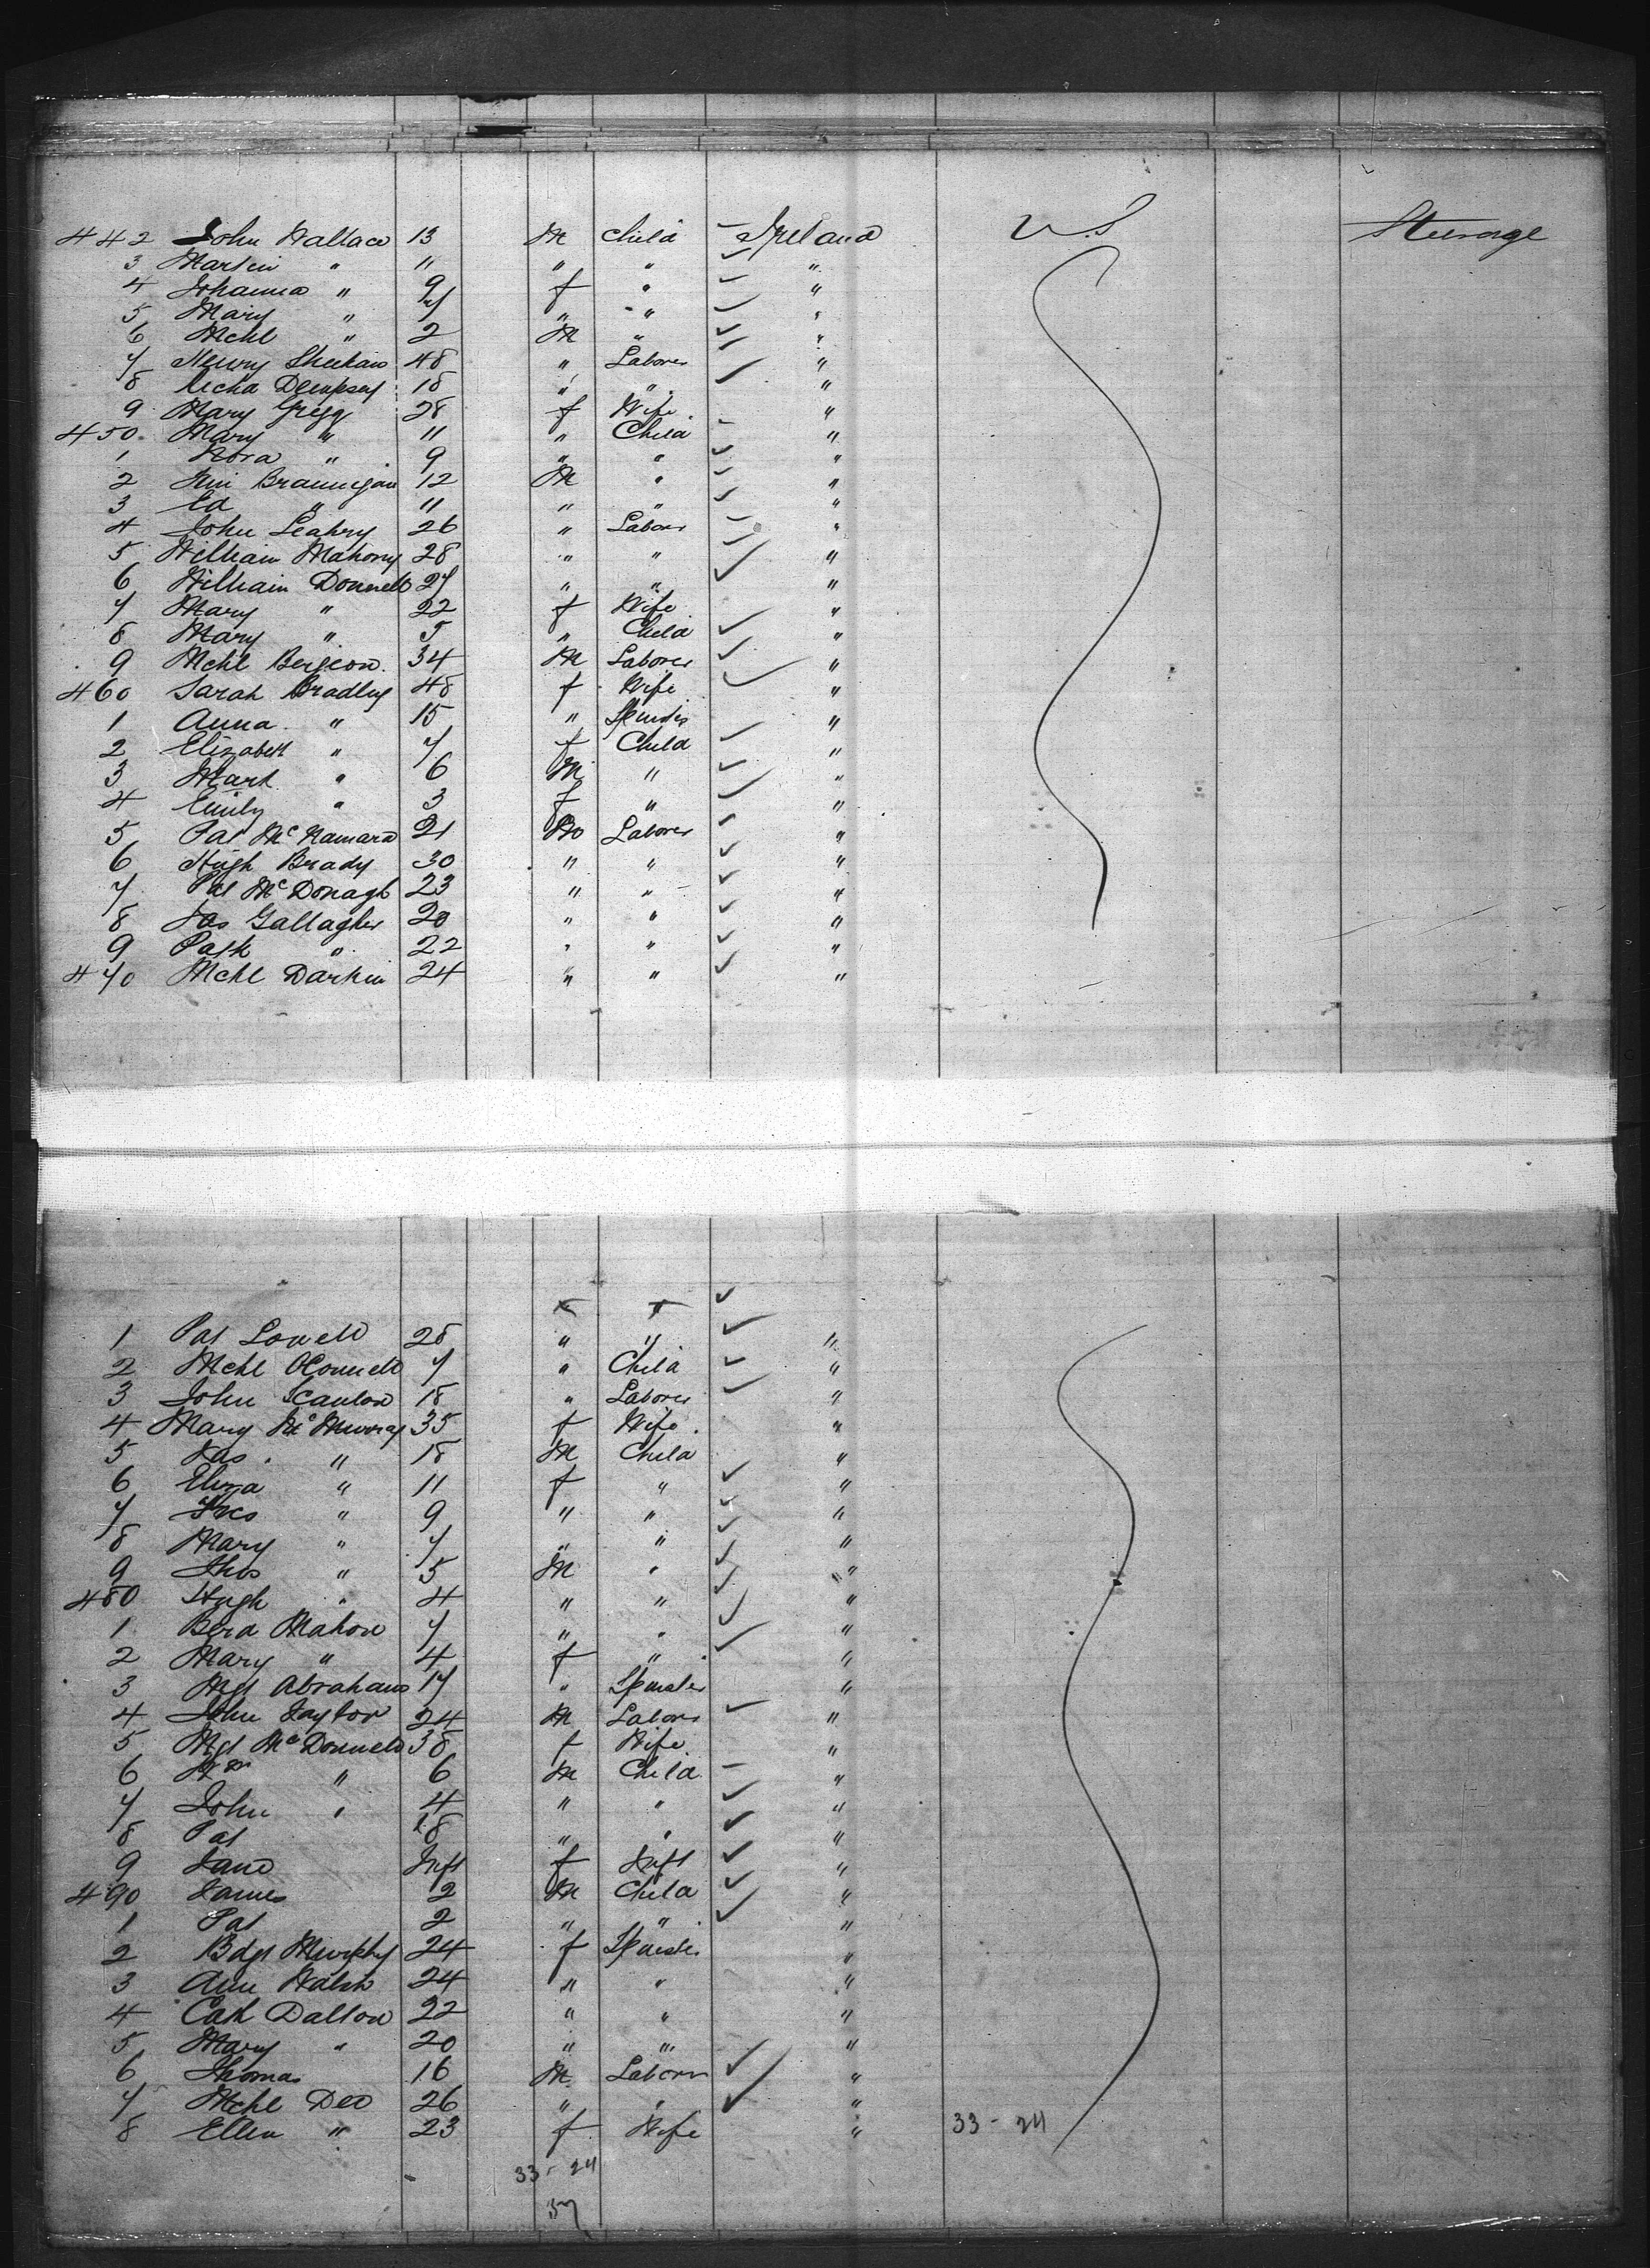 442 John Wallace 13 M Child – Ireland U.S Steerage
3 Martin " 11 " " ✓ "
4 Johanna " 9 f " – "
5 Mary " 7 " " ✓ "
6 Mchl " 2 M " ✓ "
7 Sheehan 48 " Laborer ✓ "
8 Dempsey 18 " " ✓ "
9 Mary Gregg 28 f Wife "
450 Mary " 11 " Child – "
1 Nora " 9 " " ✓ "
2 Brannigan 12 M " ✓ "
3 Ed " 11 " " ✓ "
4 John Leahry 26 " Labor – "
5 William Mahony 28 " " ✓ "
6 William Donnell 27 " " ✓ "
7 Mary " 22 f Wife "
8 Mary " 5 " Child ✓ "
9 Mchl Bergeon 34 M Laborer ✓ "
460 Sarah Bradley 48 f Wife ✓ "
1 Anna " 15 " "
2 Elizabeth " 7 f Child ✓ "
3 Mark " 6 M " ✓ "
4 Emily " 3 f " ✓ "
5 Pat McNamara 21 M Laborer ✓ "
6 Hugh Brady 30 " " ✓ "
7 Pat McDonagh 23 " " ✓ "
8 Jas Gallagher 20 " " ✓ "
9 Patk " 22 " " ✓ "
470 Mchl Darkin 24 " " ✓ "
1 Pat Lowell 28 " " ✓ "
2 Mchl OConnell 7 " Child ✓ "
3 John Scanlon 18 " Laborer ✓ "
4 Mary McMurray 35 f Wife "
5 Jas " 18 M Child "
6 Eliza " 11 f " ✓ "
7 " 9 " " ✓ "
8 Mary " 7 " " ✓ "
9 Thos " 5 M " ✓ "
480 Hugh " 4 " " ✓ "
1 Mahon 7 " " ✓ "
2 Mary " 4 f " ✓ "
3 Mgt Abrahams 17 " Spinster "
4 John Taylor 24 M Labor ✓ "
5 Mgt McDonnell 38 f Wife "
6 Wm " 6 M Child – "
7 John " 4 " " ✓ "
8 Pat " " ✓ "
9 Jane Inft f Inft ✓ "
490 James 2 M Child ✓ "
1 Pat 2 " " ✓ "
2 Bdgt Murphy 24 f Spinster "
3 Ann Walsh 24 " " "
4 Cath Dalton 22 " " "
5 Mary " 20 " " "
6 Thomas 16 M Laborer ✓ "
7 Mchl Deo 26 " " ✓ "
8 Ellen " 23 f Wife " 33 - 24
33 - 24
57